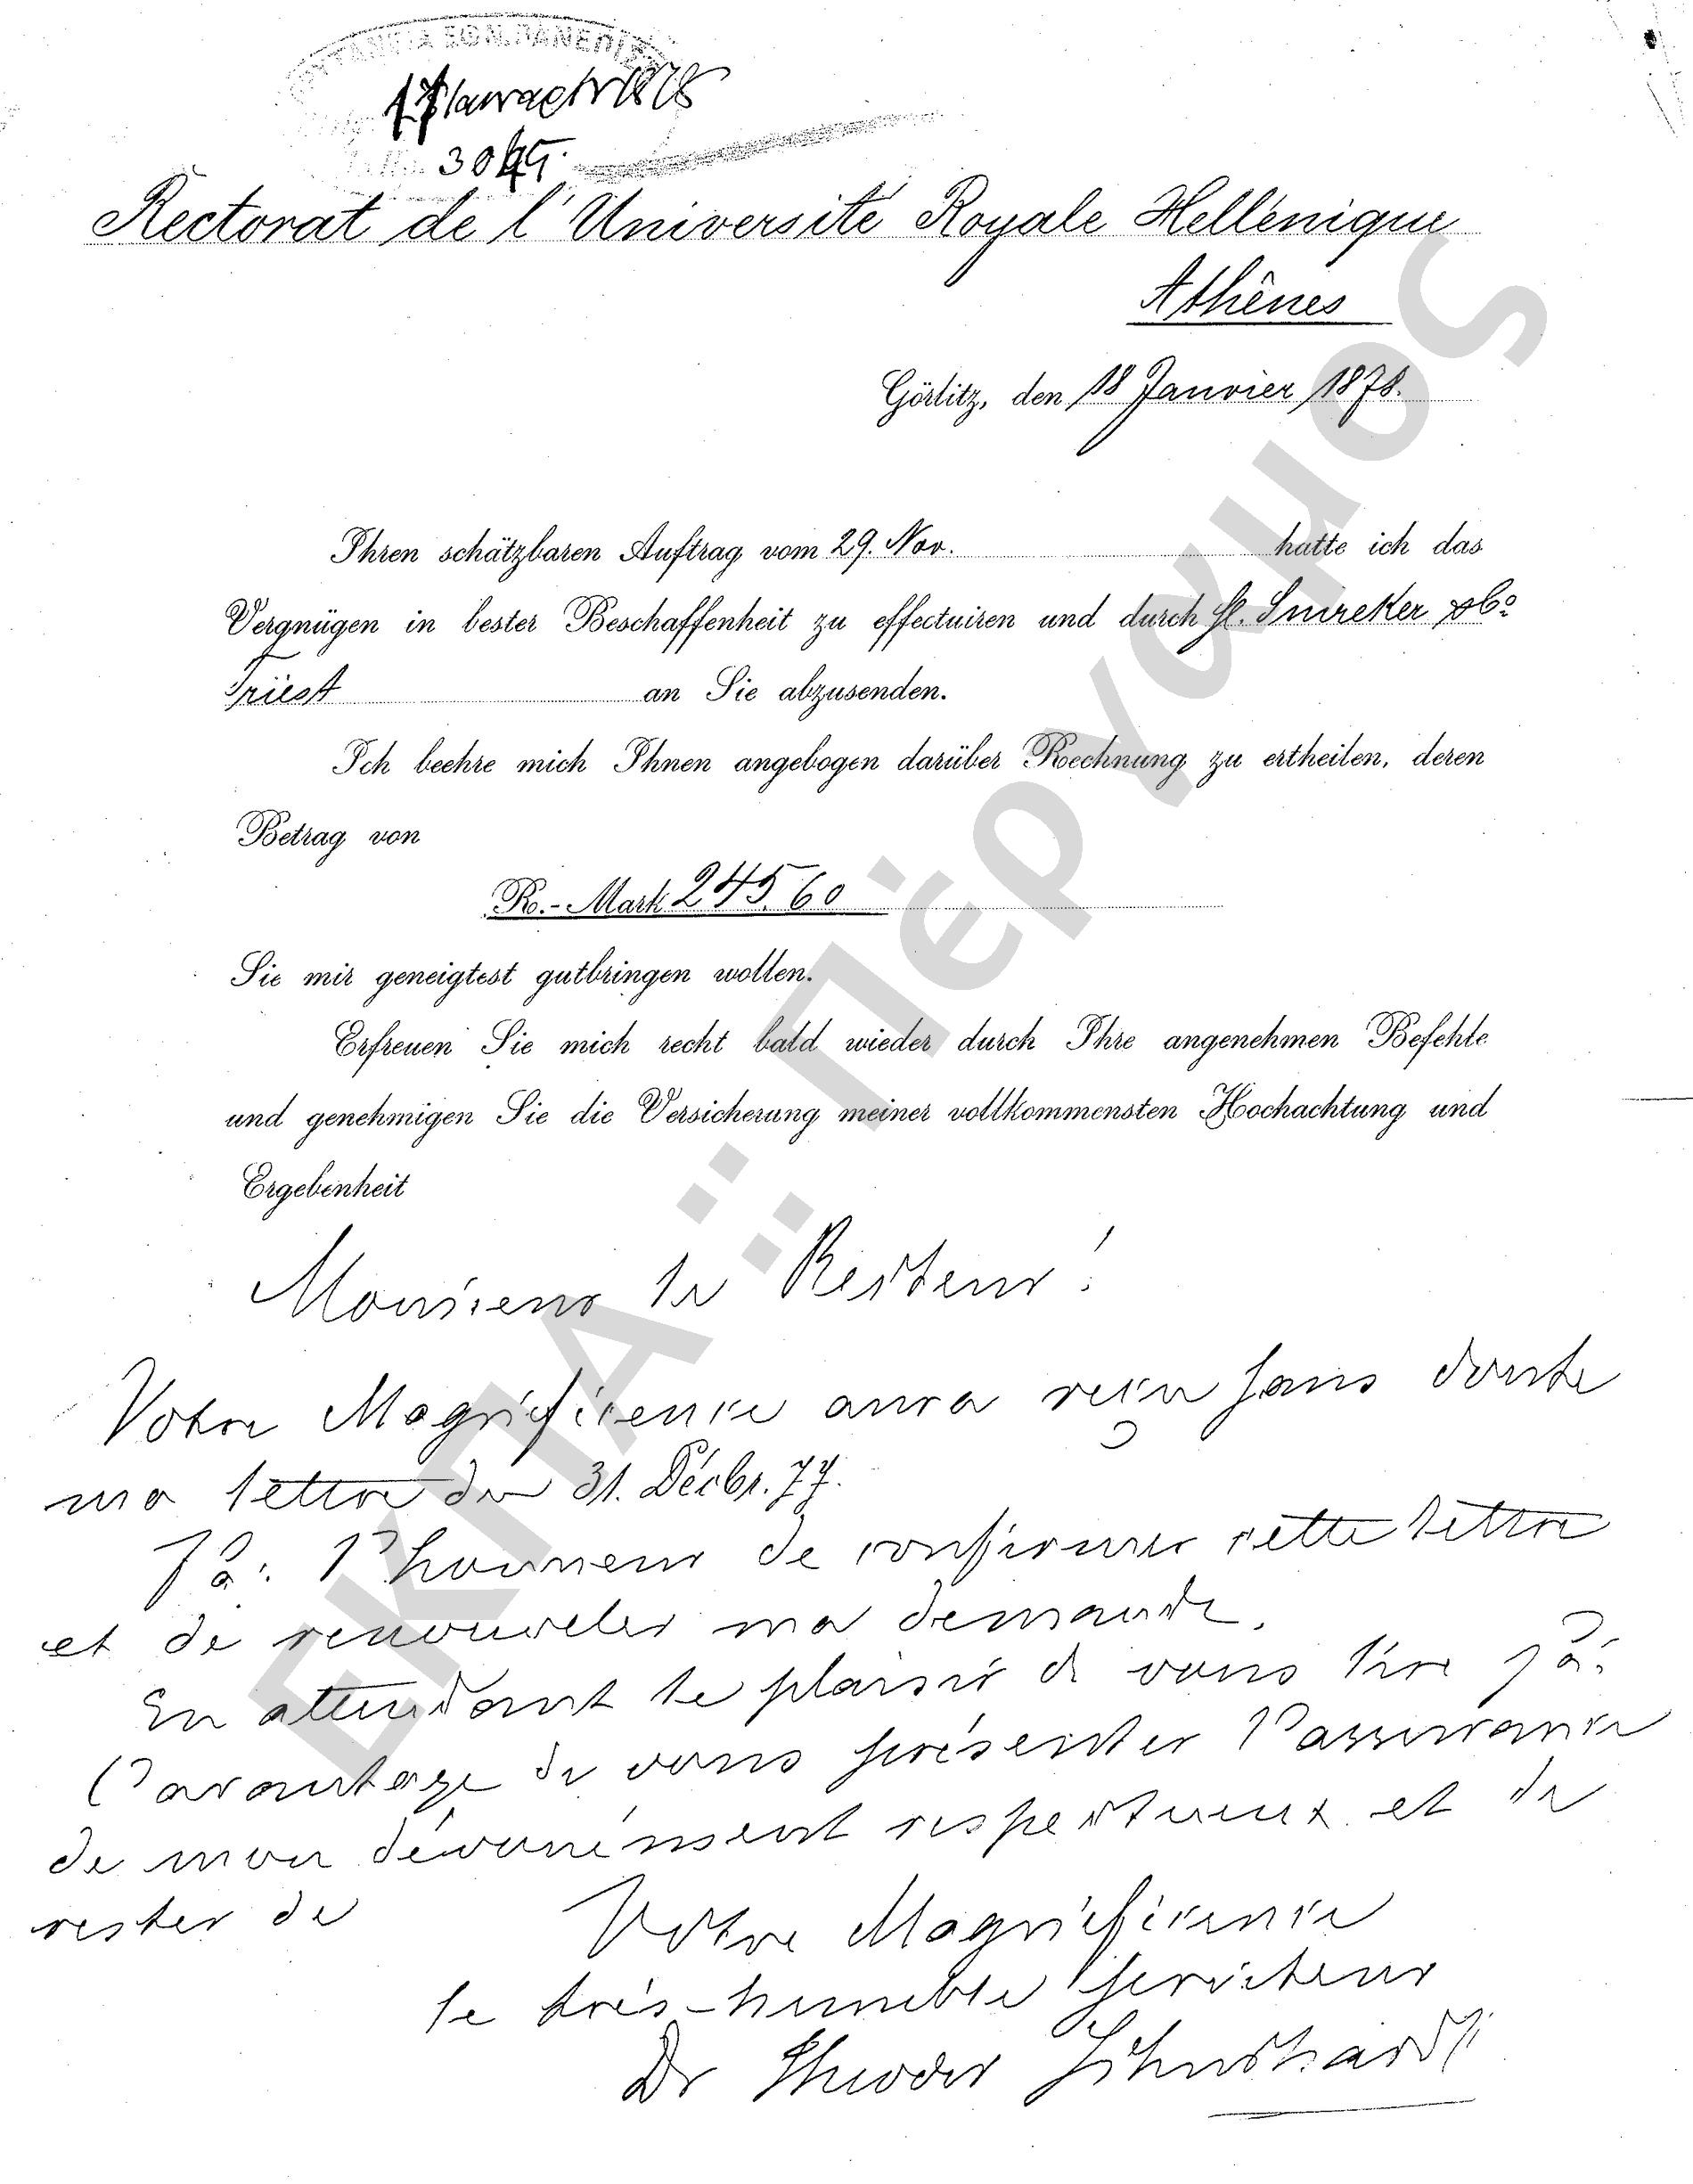 ΠΡΥΤΑΝΕΙΑ ΕΘΝ. ΠΑΝΕΠΙΣ
17 1878
Rectorat de l'Université Royale Hellénique
Athênes
Görlitz, den 18 Janvier 1878.
Ihren schätzbaren Auftrag vom 29. Nov. hatte ich das
Vergnügen in bester Beschaffenheit zu effectuiren und durch
Triest an Sie abzusenden.
Ich beehre mich Ihnen angebogen darüber Rechnung zu ertheilen, deren
Betrag von
R.-Mark 245.60
Sie mir geneigtest gutbringen wollen.
Erfreuen Sie mich recht bald wieder durch Ihre angenehmen Befehle
und genehmigen Sie die Versicherung meiner vollkommensten Hochachtung und
Ergebenheit
Monsieur le Recteur!
Votre Magnificence aura reçu sans doute
ma lettre du 31. Décbr. 77.
J'ai l'honneur de confirmer cette lettre
et de renouveler ma demande.
En attendant le plaisir de vous lire j'ai
l'avantage de vous présenter l'assurance
de mon dévouement respectueux et de
rester de
Votre Magnificence
le très-humble serviteur
Dr Theodor Schuchardt
ΕΚΠΑ :: Πέργαμος